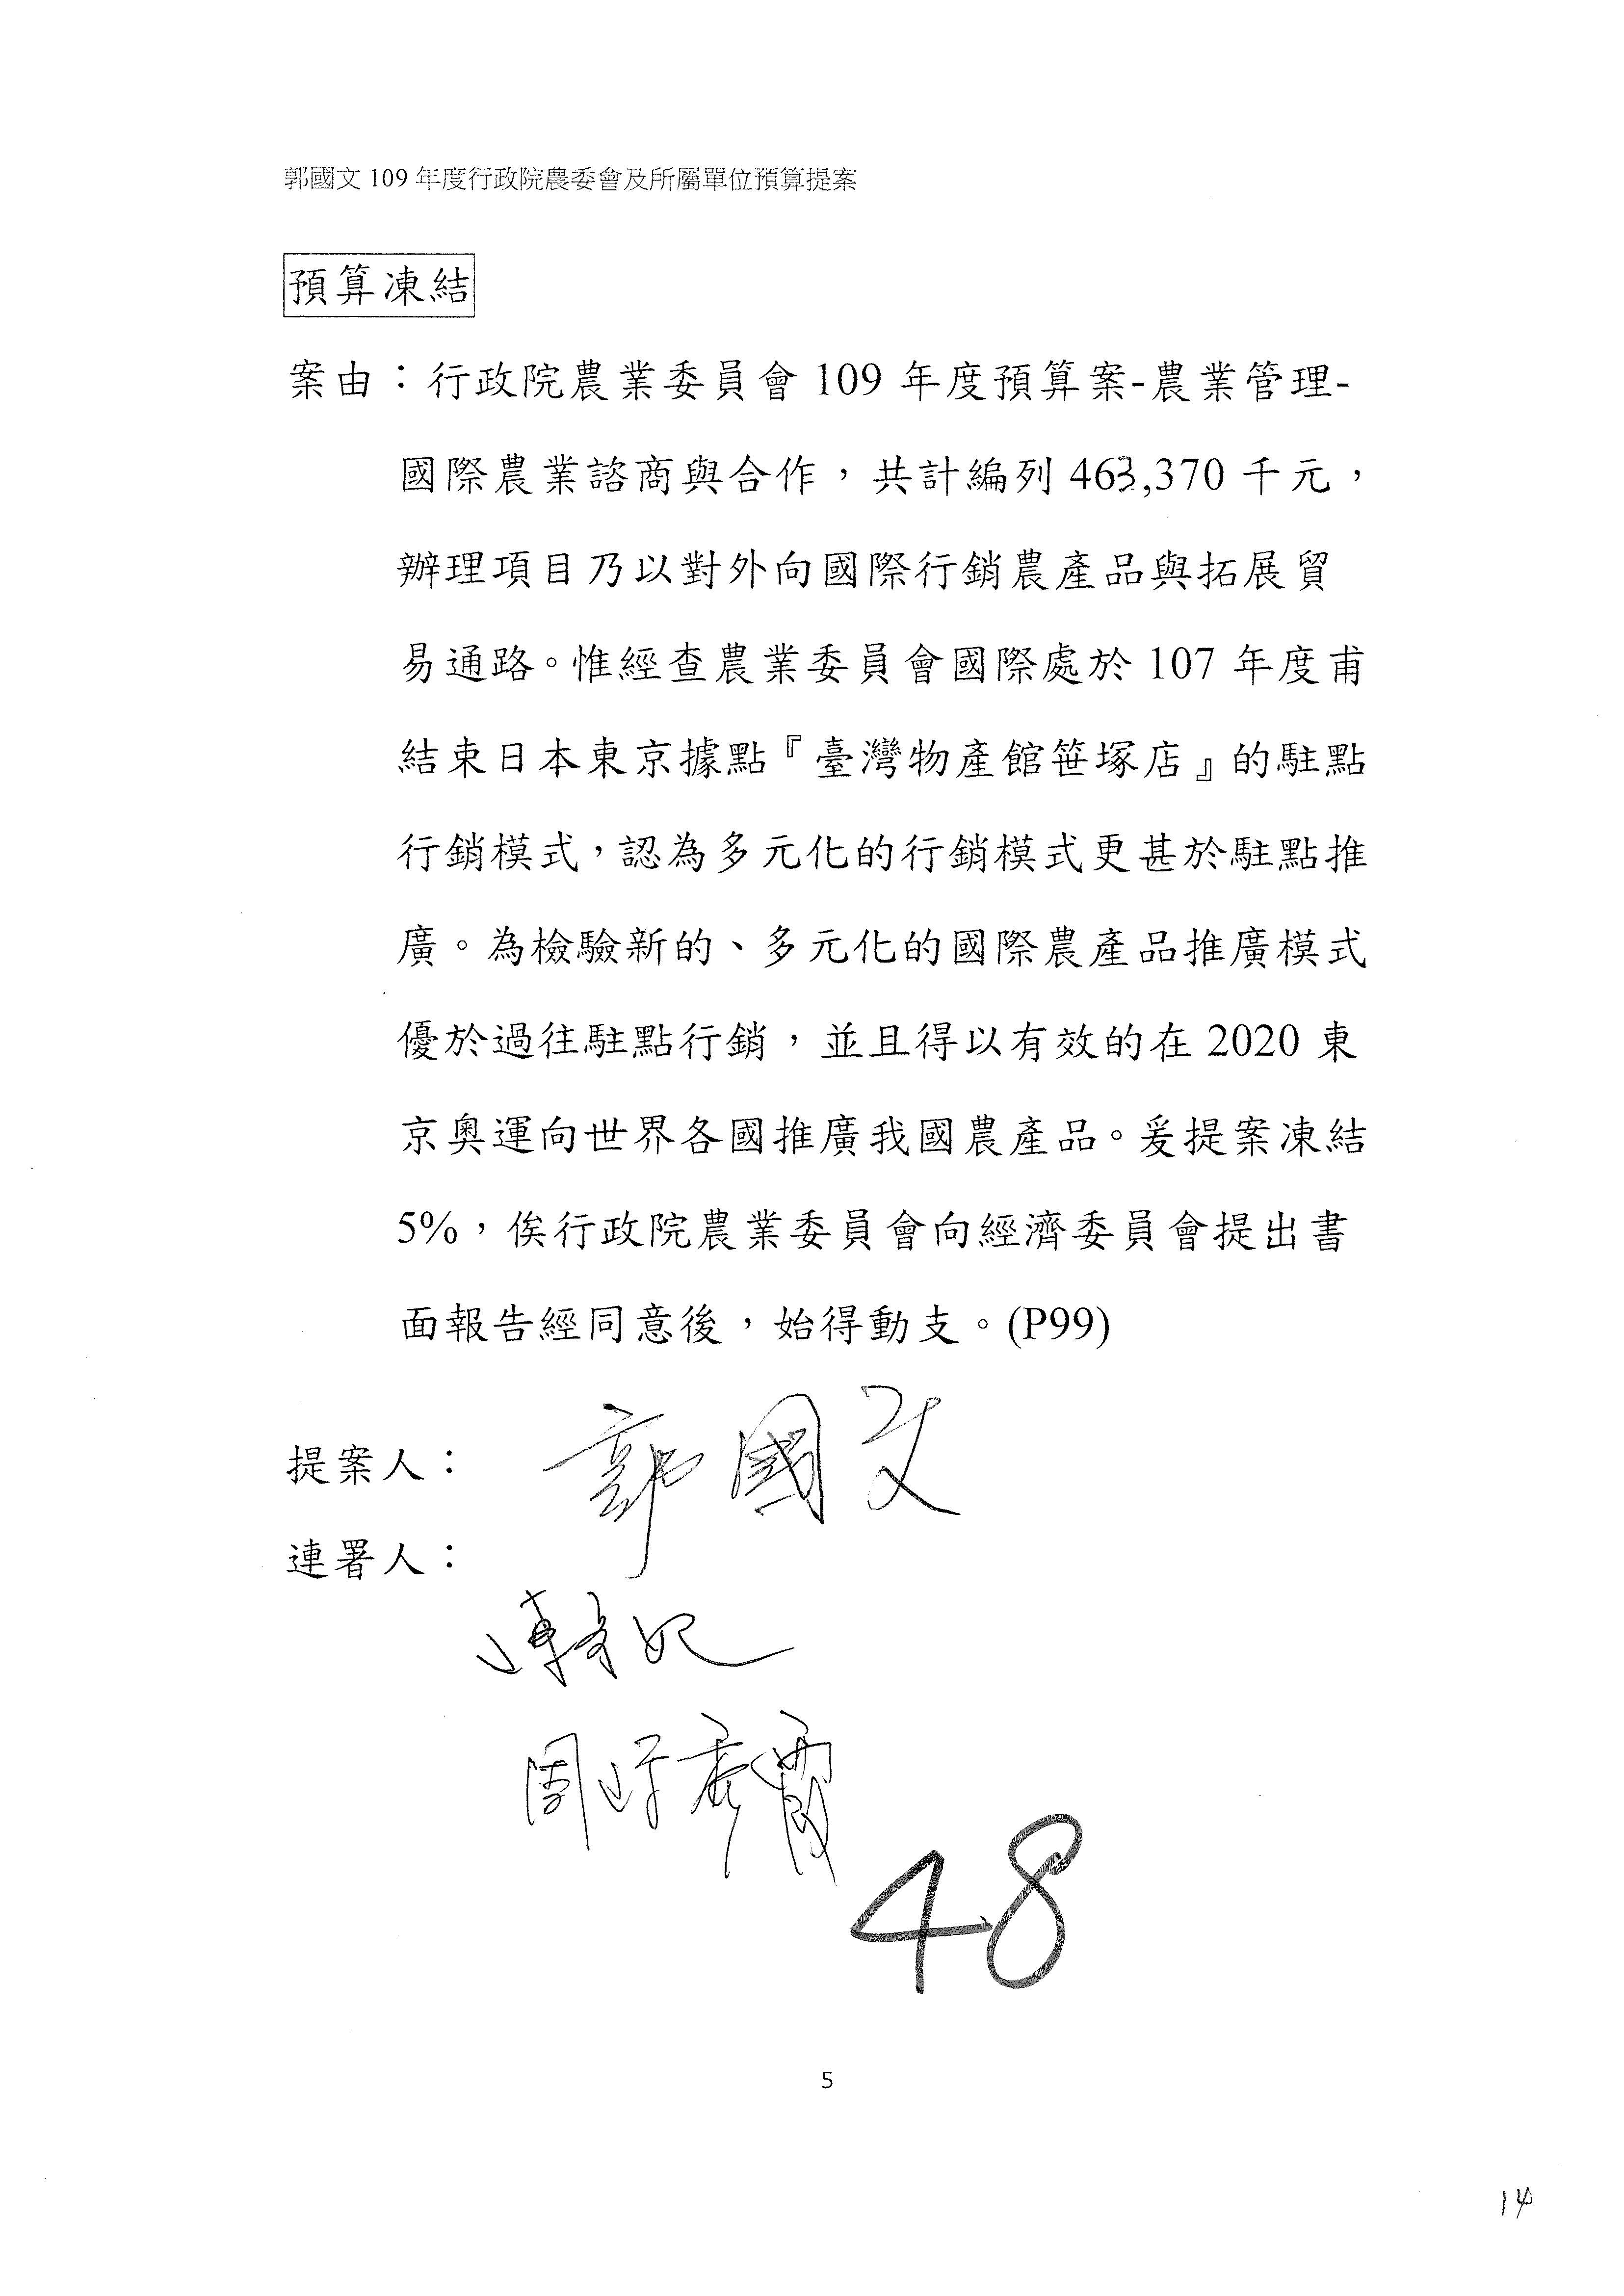 郭國文 109 年度行政院農委會及所屬單位預算提案
預算凍結
案由：行政院農業委員會 109 年度預算案-農業管理-
國際農業諮商與合作，共計編列 463,370 千元，
辦理項目乃以對外向國際行銷農產品與拓展貿
易通路。惟經查農業委員會國際處於 107 年度甫
結束日本東京據點『臺灣物產館笹塚店』的駐點
行銷模式，認為多元化的行銷模式更甚於駐點推
廣。為檢驗新的、多元化的國際農產品推廣模式
優於過往駐點行銷，並且得以有效的在 2020 東
京奧運向世界各國推廣我國農產品。爰提案凍結
5%，俟行政院農業委員會向經濟委員會提出書
面報告經同意後，始得動支。(P99)
提案人：郭國文
連署人：
48
5
14